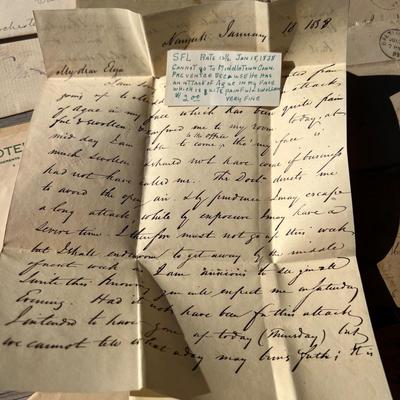 January 18 1838
SFL RATE 12½ JAN 18, 1838
CANNOT GO TO MIDDLETOWN CONN.
PREVENTED BECAUSE HE HAS
AN ATTACK OF AGUE IN MY FACE
WHICH IS QUITE PAINFUL & SWOLLEN
$2.00 VERY FINE
My dear Eliza
I am from
going up to attack
of ague in my face which has been quite pain
ful & swollen, & confined me to my room today, at
mid day I am to the office to come & "my face"
much swollen & should not have come if business
had not have called me. The Doctr directs me
to avoid the open air. & by prudence I may escape
a long attack, while by exposure I may have a
severe time. I therefore must not go up this week
but I shall endeavor to get away by the middle
of next week I am anxious to see you all
I write this knowing you will expect me on Saturday
Evening. Had it not have been for this attack
I intended to have gone up today (Thursday) but
we cannot tell what a day may bring forth; It is